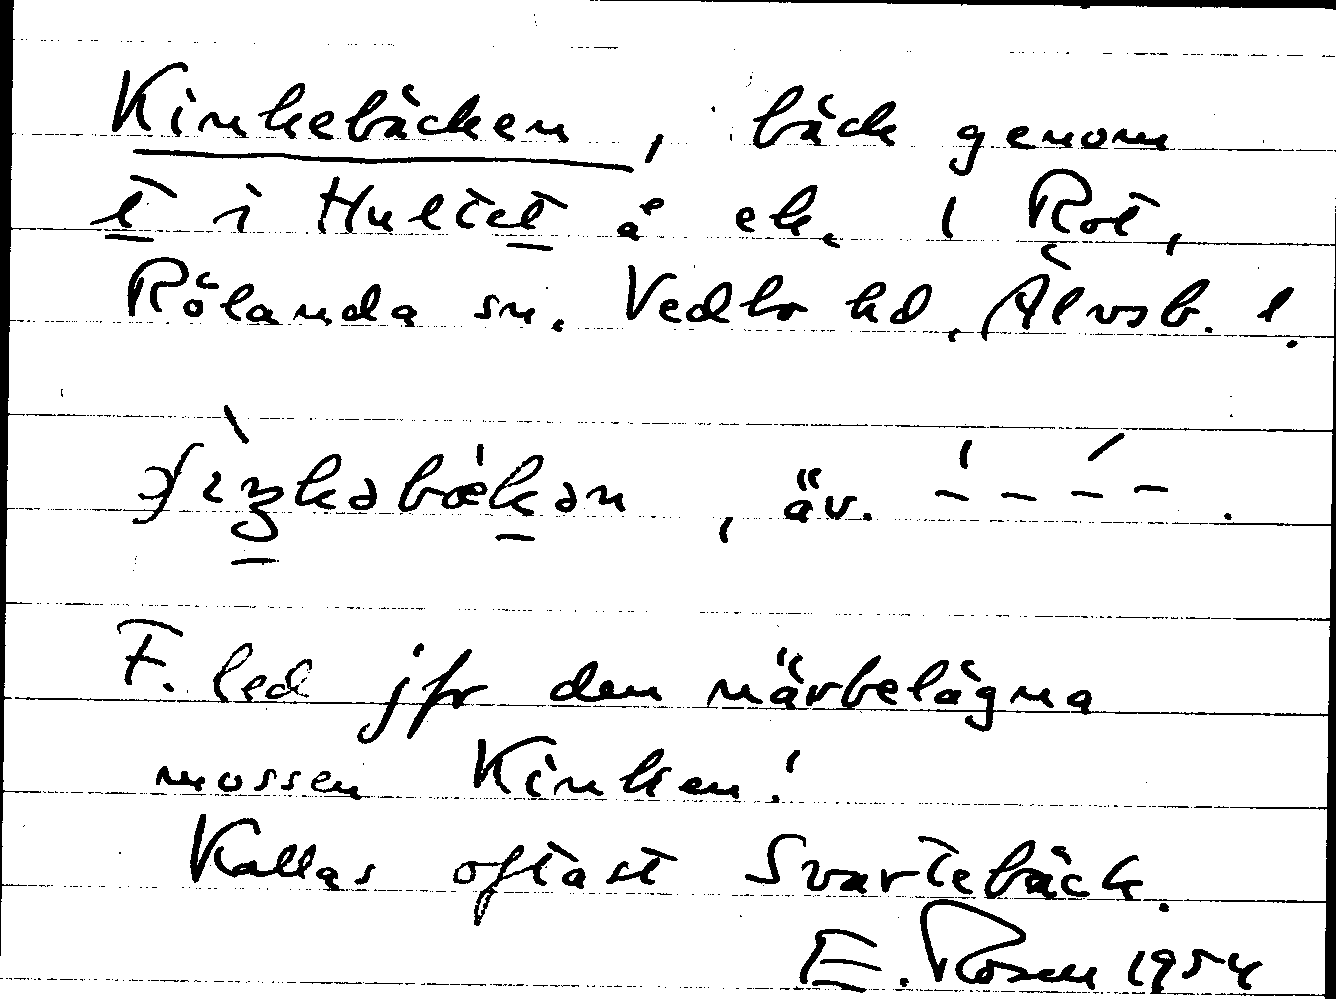 Kinkebäcken, bäck genom
t i Hultet å ek. i Rot,
Rölanda sn. Vedbo hd, Älvsb. l.
, äv.
F. led jfr den närbelägna
mossen Kinken!
Kallas oftast Svartebäck.
E. Rosell 1954